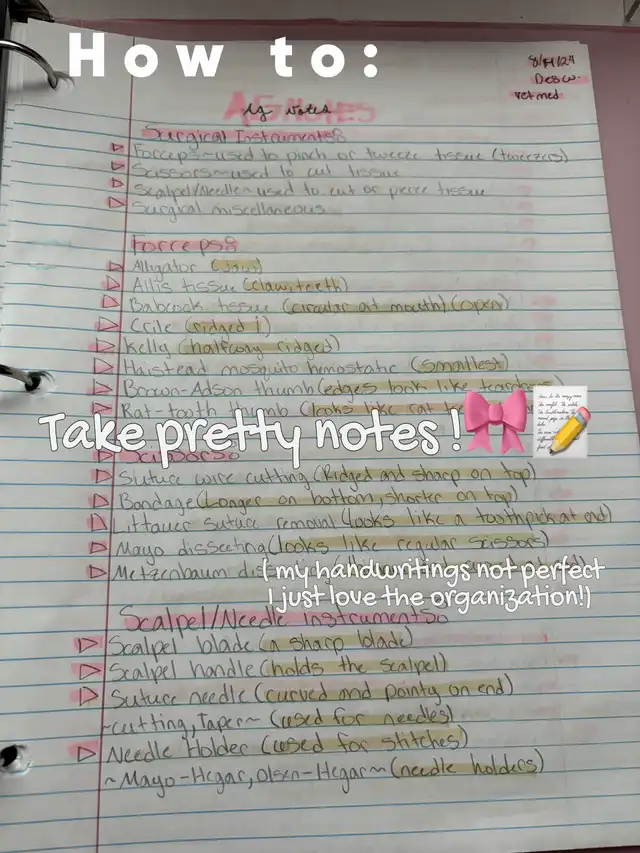 How to:
8/14/24
Des w.
vet med
AG NOTES
Ag Notes
Surgical Instruments:
Forceps~used to pinch or tweeze tissue (tweezers)
Scissors~used to cut tissue
Scalpel/Needle~used to cut or pierce tissue
Surgical miscellaneous
Forceps:
Alligator (Jaw)
Allis tissue (claw, teeth)
Babcock tissue (circular at mouth) (open)
Crile (ridged)
Kelly (halfway ridged)
Halstead mosquito hemostatic (smallest)
Brown-Adson thumb (edges look like
Rat-tooth thumb (looks like rat
Take pretty notes!🎀📝
Scissors:
Suture wire cutting (Ridged and sharp on top)
Bandage (Longer on bottom, shorter on top)
Littauer suture removal (looks like a toothpick at end)
Mayo dissecting (looks like regular scissors)
Metzenbaum
( my handwritings not perfect
I just love the organization!)
Scalpel/Needle Instruments:
Scalpel blade (a sharp blade)
Scalpel handle (holds the scalpel)
Suture needle (curved and pointy on end)
~cutting, Taper~ (used for needles)
Needle Holder (used for stitches)
~Mayo-Hegar, Olsen-Hegar~ (needle holders)